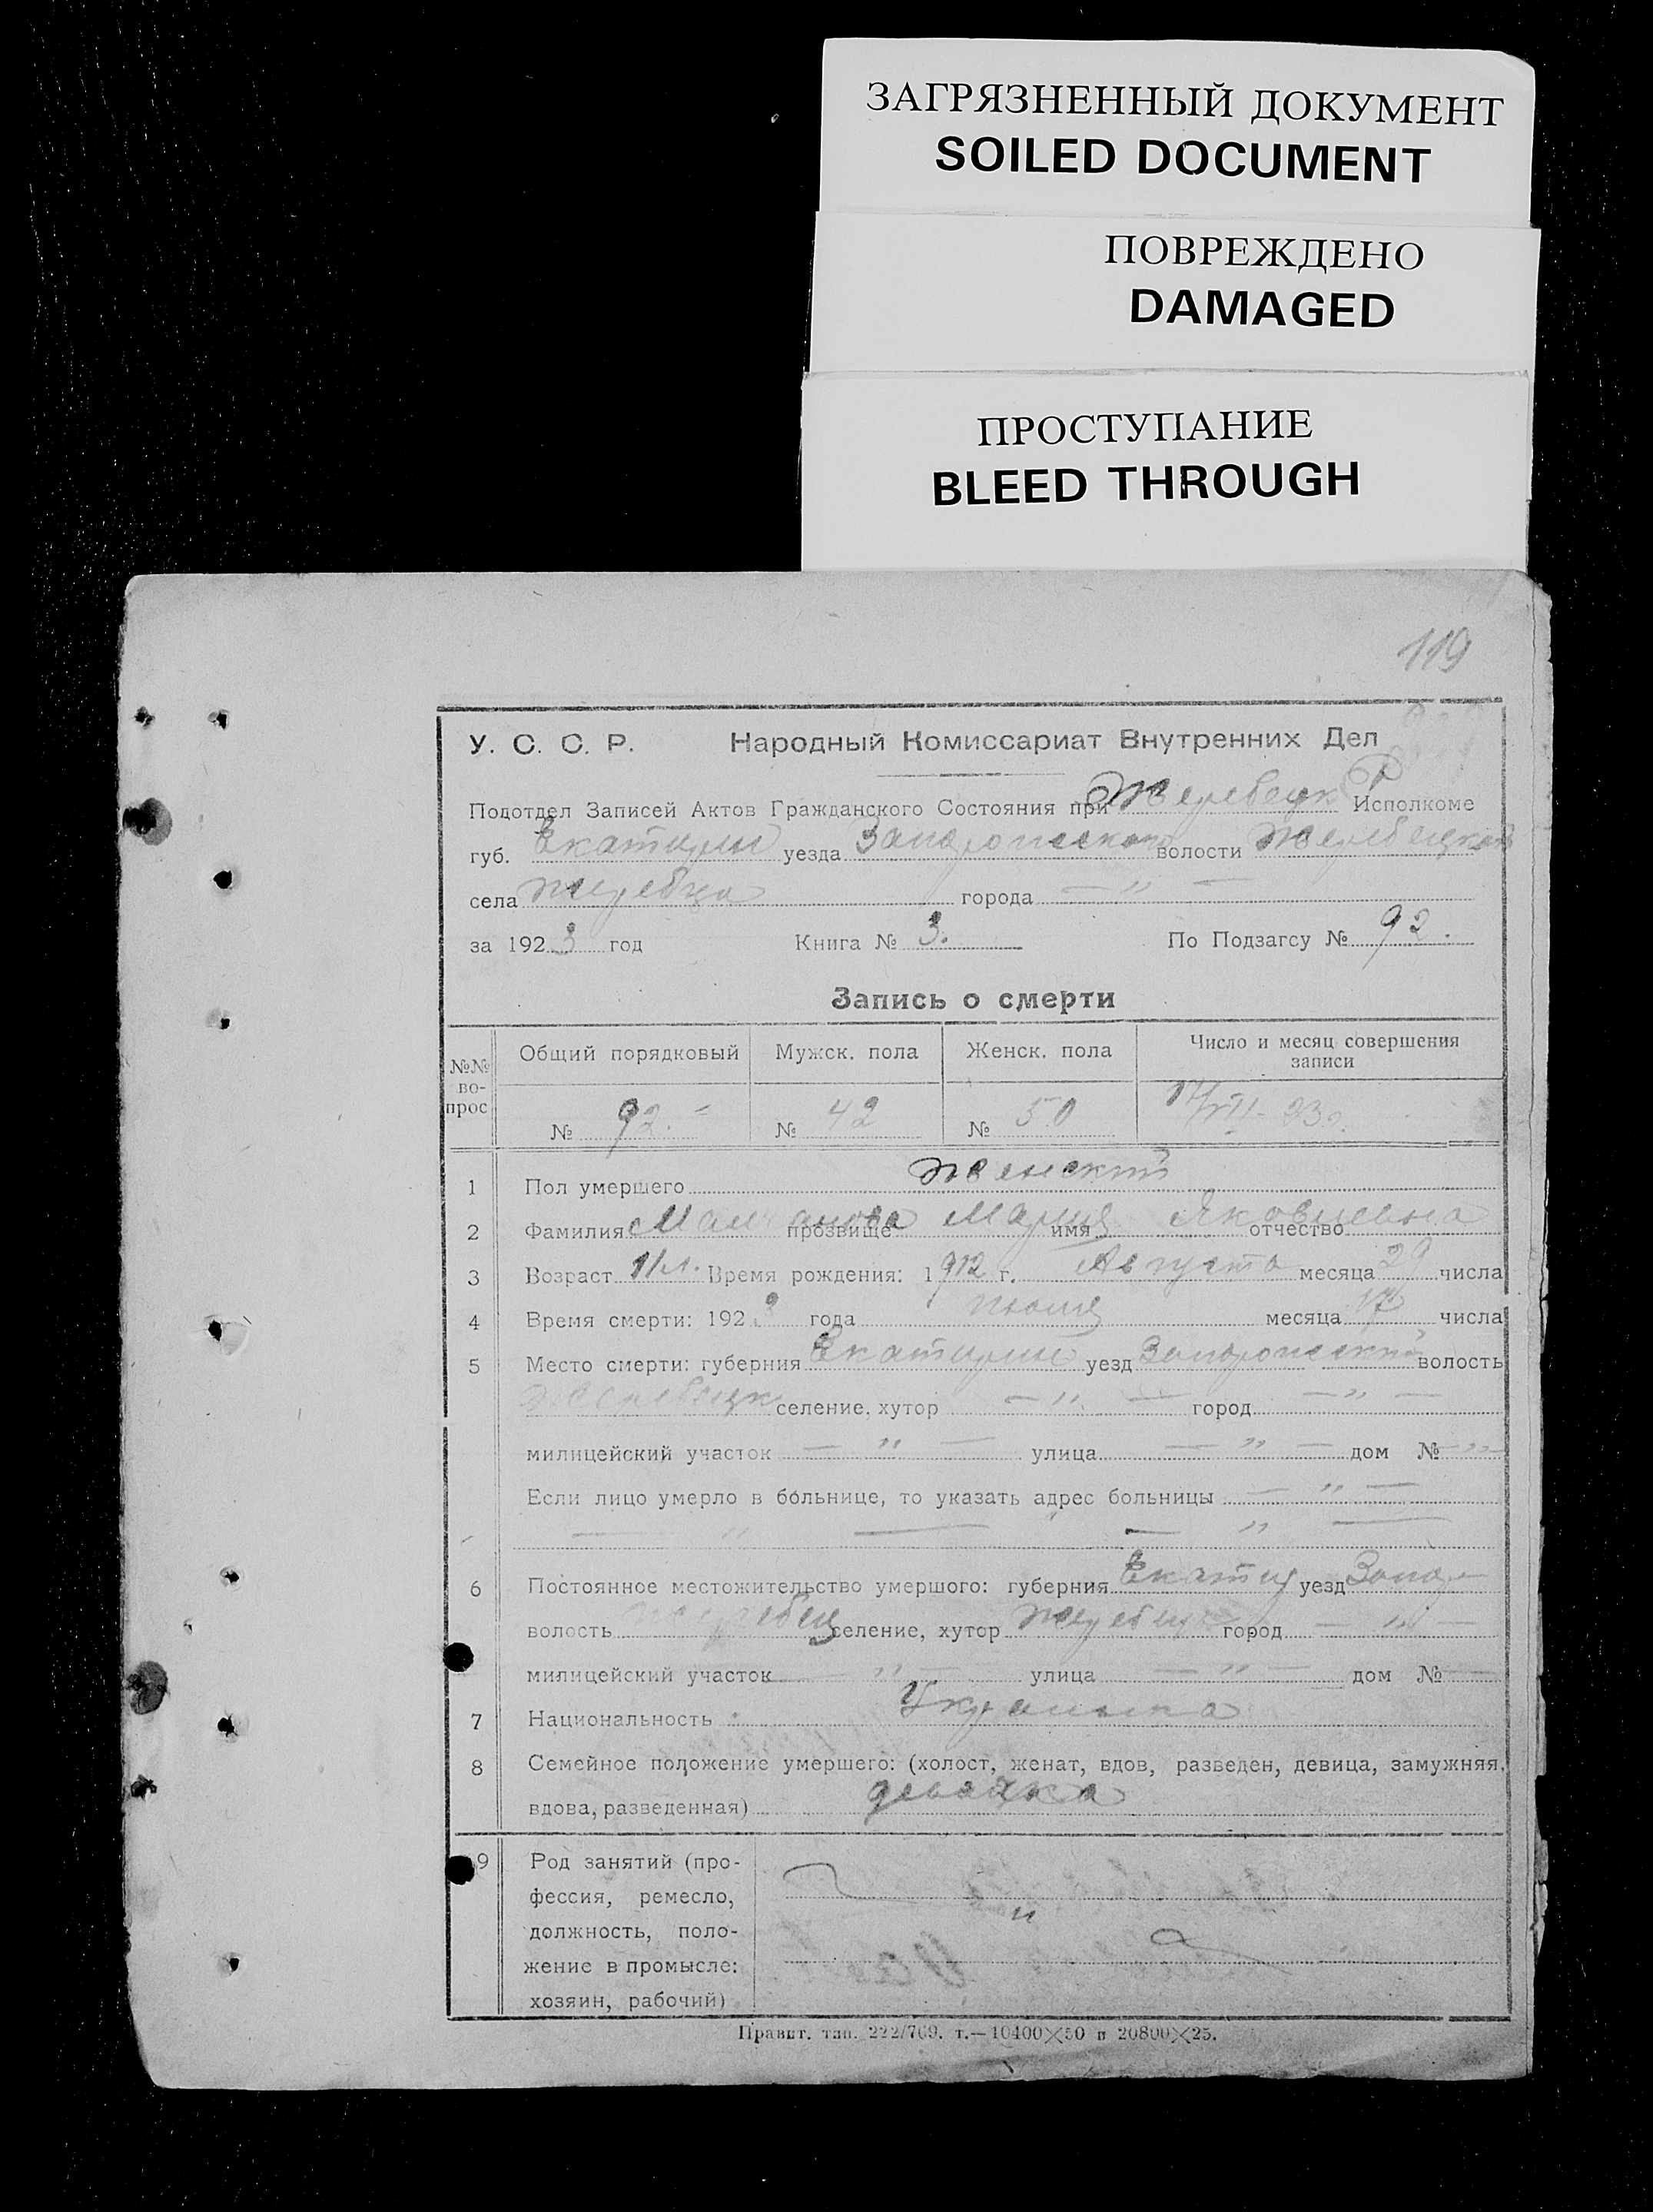 ЗАГРЯЗНЕННЫЙ ДОКУМЕНТ
SOILED DOCUMENT
ПОВРЕЖДЕНО
DAMAGED
ПРОСТУПАНИЕ
BLEED THROUGH
119
У. С. С. Р. Народный Комиссариат Внутренних Дел
Подотдел Записей Актов Гражданского Состояния при Жеребецк Р Исполкоме
губ. Екатирин уезда Запорожского волости Жеребецкой
села Жеребца города — " —
за 1923 год Книга № 3. По Подзагсу № 92.
Запись о смерти
№№ вопрос Общий порядковый Мужск. пола Женск. пола Число и месяц совершения записи
№ 92. № 42 № 50 23 г.
1 Пол умершего Женский
2 Фамилия прозвище Мария имя Яковлевна отчество
3 Возраст 11 л. Время рождения: 1912 г. Августа месяца 29 числа
4 Время смерти: 1923 года месяца 17 числа
5 Место смерти: губерния Екатирин уезд Запорожский волость
Жеребецк селение, хутор — " — город — " —
милицейский участок — " — улица — " — дом № — " —
Если лицо умерло в больнице, то указать адрес больницы — " —
— " — — " —
6 Постоянное местожительство умершого: губерния Екатир уезд Запор
волость Жеребец селение, хутор Жеребец город — " —
милицейский участок — " — улица — " — дом № —
7 Национальность Украинка
8 Семейное положение умершего: (холост, женат, вдов, разведен, девица, замужняя,
вдова, разведенная)
9 Род занятий (про-
фессия, ремесло,
должность, поло- "
жение в промысле:
хозяин, рабочий)
Правит. тип. 222/769. т.—10400×50 и 20800×25.